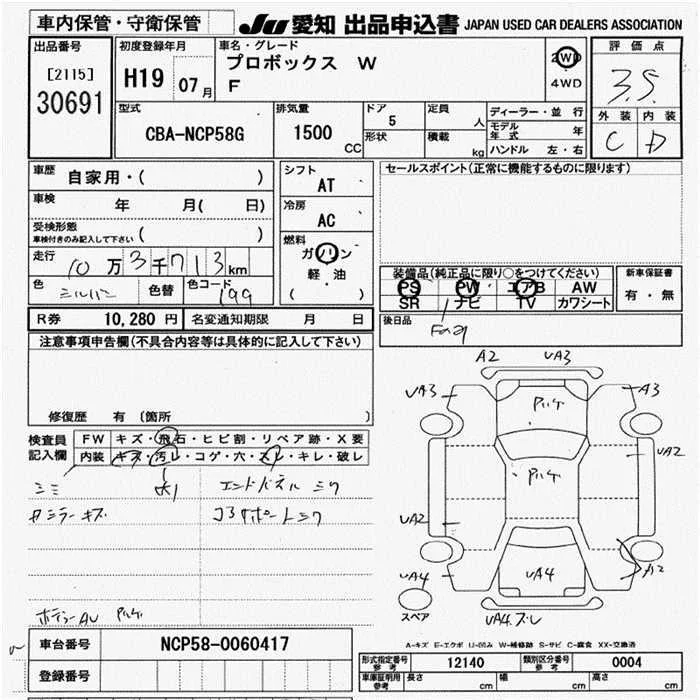 車内保管・守衛保管 JU 愛知 出品申込書 JAPAN USED CAR DEALERS ASSOCIATION
出品番号 初度登録年月 車名・グレード 評価点
[2115] H19 07月 プロボックス W 2WD 3.5
30691 F 4WD
型式 排気量 ドア 定員 ディーラー・並行 外装 内装
CBA-NCP58G 1500 CC 5 人 モデル年式 年 C D
形状 積載 kg ハンドル 左・右
車歴 自家用・( ) シフト AT セールスポイント(正常に機能するものに限ります)
車検 年 月( 日) 冷房 AC
受検形態 車検付きのみ記入して下さい ( ) 燃料 ガソリン
走行 10万3千713km 軽・油
色 シルバー 色替 色コード 199 ( )
装備品(純正品に限り○をつけてください) 新車保証書
PS PW エアB AW 有・無
SR ナビ TV カワシート
R券 10,280円 名変通知期限 月 日 後日品
注意事項申告欄(不具合内容等は具体的に記入して下さい)
A2 UA3
UA3 A3
修復歴 有 〔箇所 〕
検査員記入欄 FW キズ・飛石・ヒビ割・リペア跡・X要
内装 キズ・汚レ・コゲ・穴・スレ・キレ・破レ
UA2
UA2
UA4 UA4 A2
スペア UA4.ズレ
A-キズ E-エクボ U-凹み W-補修跡 S-サビ C-腐食 XX-交換済
車台番号 NCP58-0060417
登録番号
形式指定番号 参考 12140 類別区分番号 参考 0004
車庫証明用 参考 長さ cm 幅 cm 高さ cm